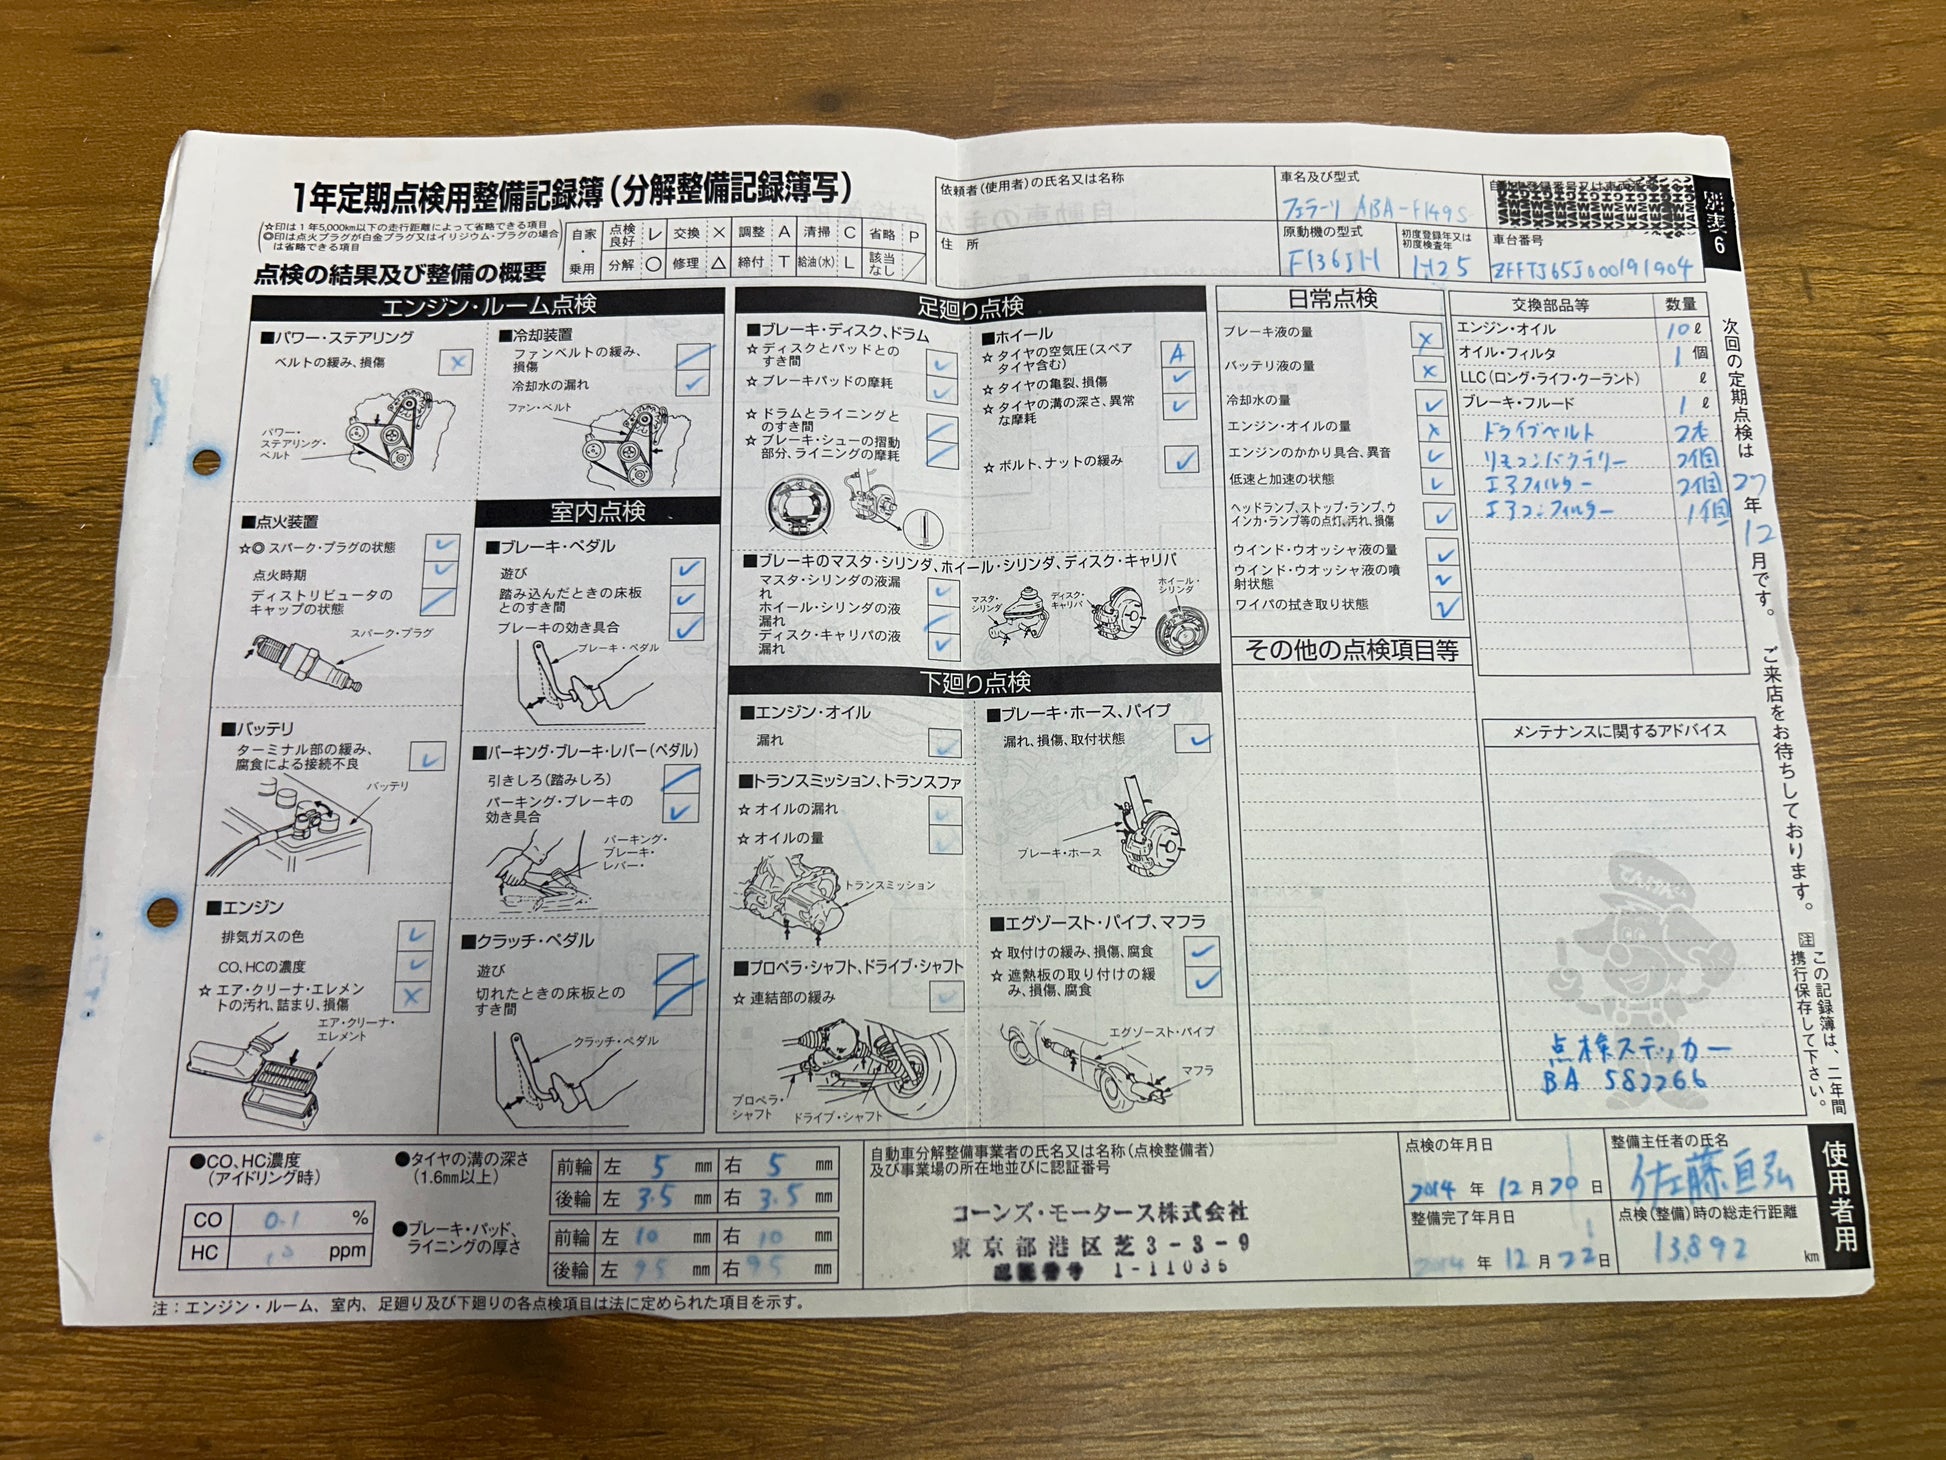 1年定期点検用整備記録簿(分解整備記録簿写)
(☆印は1年5,000km以下の走行距離によって省略できる項目
◎印は点火プラグが白金プラグ又はイリジウム・プラグの場合は省略できる項目)
自家・乗用
点検良好 レ 交換 × 調整 A 清掃 C 省略 P
分解 ○ 修理 △ 締付 T 給油(水) L 該当なし ／
点検の結果及び整備の概要
依頼者(使用者)の氏名又は名称
住 所
車名及び型式
フェラーリ ABA-F149S
原動機の型式
F136IH
初度登録年又は初度検査年
H25
車台番号
ZFFTJ65J000191904
別表6
エンジン・ルーム点検
■パワー・ステアリング
ベルトの緩み、損傷 ×
パワー・ステアリング・ベルト
■冷却装置
ファンベルトの緩み、損傷
冷却水の漏れ
ファン・ベルト
■点火装置
☆◎ スパーク・プラグの状態
点火時期
ディストリビュータのキャップの状態
スパーク・プラグ
■バッテリ
ターミナル部の緩み、腐食による接続不良
バッテリ
■エンジン
排気ガスの色
CO、HCの濃度
☆ エア・クリーナ・エレメントの汚れ、詰まり、損傷 ×
エア・クリーナ・エレメント
室内点検
■ブレーキ・ペダル
遊び
踏み込んだときの床板とのすき間
ブレーキの効き具合
ブレーキ・ペダル
■パーキング・ブレーキ・レバー(ペダル)
引きしろ(踏みしろ)
パーキング・ブレーキの効き具合
パーキング・ブレーキ・レバー
■クラッチ・ペダル
遊び
切れたときの床板とのすき間
クラッチ・ペダル
足廻り点検
■ブレーキ・ディスク、ドラム
☆ ディスクとパッドとのすき間
☆ ブレーキパッドの摩耗
☆ ドラムとライニングとのすき間
☆ ブレーキ・シューの摺動部分、ライニングの摩耗
■ホイール
☆ タイヤの空気圧(スペアタイヤ含む) A
☆ タイヤの亀裂、損傷
☆ タイヤの溝の深さ、異常な摩耗
☆ ボルト、ナットの緩み
■ブレーキのマスタ・シリンダ、ホイール・シリンダ、ディスク・キャリパ
マスタ・シリンダの液漏れ
ホイール・シリンダの液漏れ
ディスク・キャリパの液漏れ
マスタ・シリンダ
ディスク・キャリパ
ホイール・シリンダ
下廻り点検
■エンジン・オイル
漏れ
■トランスミッション、トランスファ
☆ オイルの漏れ
☆ オイルの量
トランスミッション
■プロペラ・シャフト、ドライブ・シャフト
☆ 連結部の緩み
プロペラ・シャフト
ドライブ・シャフト
■ブレーキ・ホース、パイプ
漏れ、損傷、取付状態
ブレーキ・ホース
■エグゾースト・パイプ、マフラ
☆ 取付けの緩み、損傷、腐食
☆ 遮熱板の取り付けの緩み、損傷、腐食
エグゾースト・パイプ
マフラ
日常点検
ブレーキ液の量 ×
バッテリ液の量 ×
冷却水の量
エンジン・オイルの量 ×
エンジンのかかり具合、異音
低速と加速の状態
ヘッドランプ、ストップ・ランプ、ウインカ・ランプ等の点灯、汚れ、損傷
ウインド・ウオッシャ液の量
ウインド・ウオッシャ液の噴射状態
ワイパの拭き取り状態
その他の点検項目等
交換部品等 数量
エンジン・オイル 10 ℓ
オイル・フィルタ 1 個
LLC(ロング・ライフ・クーラント) ℓ
ブレーキ・フルード 1 ℓ
ドライブベルト 2本
リモコンバッテリー 2個
エアフィルター 2個
エアコンフィルター 1個
メンテナンスに関するアドバイス
てんけんくん
点検ステッカー
BA 582266
次回の定期点検は27年12月です。 ご来店をお待ちしております。
注 この記録簿は、二年間携行保存して下さい。
●CO、HC濃度(アイドリング時)
CO 0.1 %
HC ppm
●タイヤの溝の深さ(1.6mm以上)
前輪 左 5 mm 右 5 mm
後輪 左 3.5 mm 右 3.5 mm
●ブレーキ・パッド、ライニングの厚さ
前輪 左 10 mm 右 10 mm
後輪 左 9.5 mm 右 9.5 mm
自動車分解整備事業者の氏名又は名称(点検整備者)及び事業場の所在地並びに認証番号
コーンズ・モータース株式会社
東京都港区芝3-3-9
認証番号 1-11036
点検の年月日
2014 年 12 月 20 日
整備完了年月日
2014 年 12 月 22 日
整備主任者の氏名
佐藤亘弘
点検(整備)時の総走行距離
13,892 km
使用者用
注:エンジン・ルーム、室内、足廻り及び下廻りの各点検項目は法に定められた項目を示す。